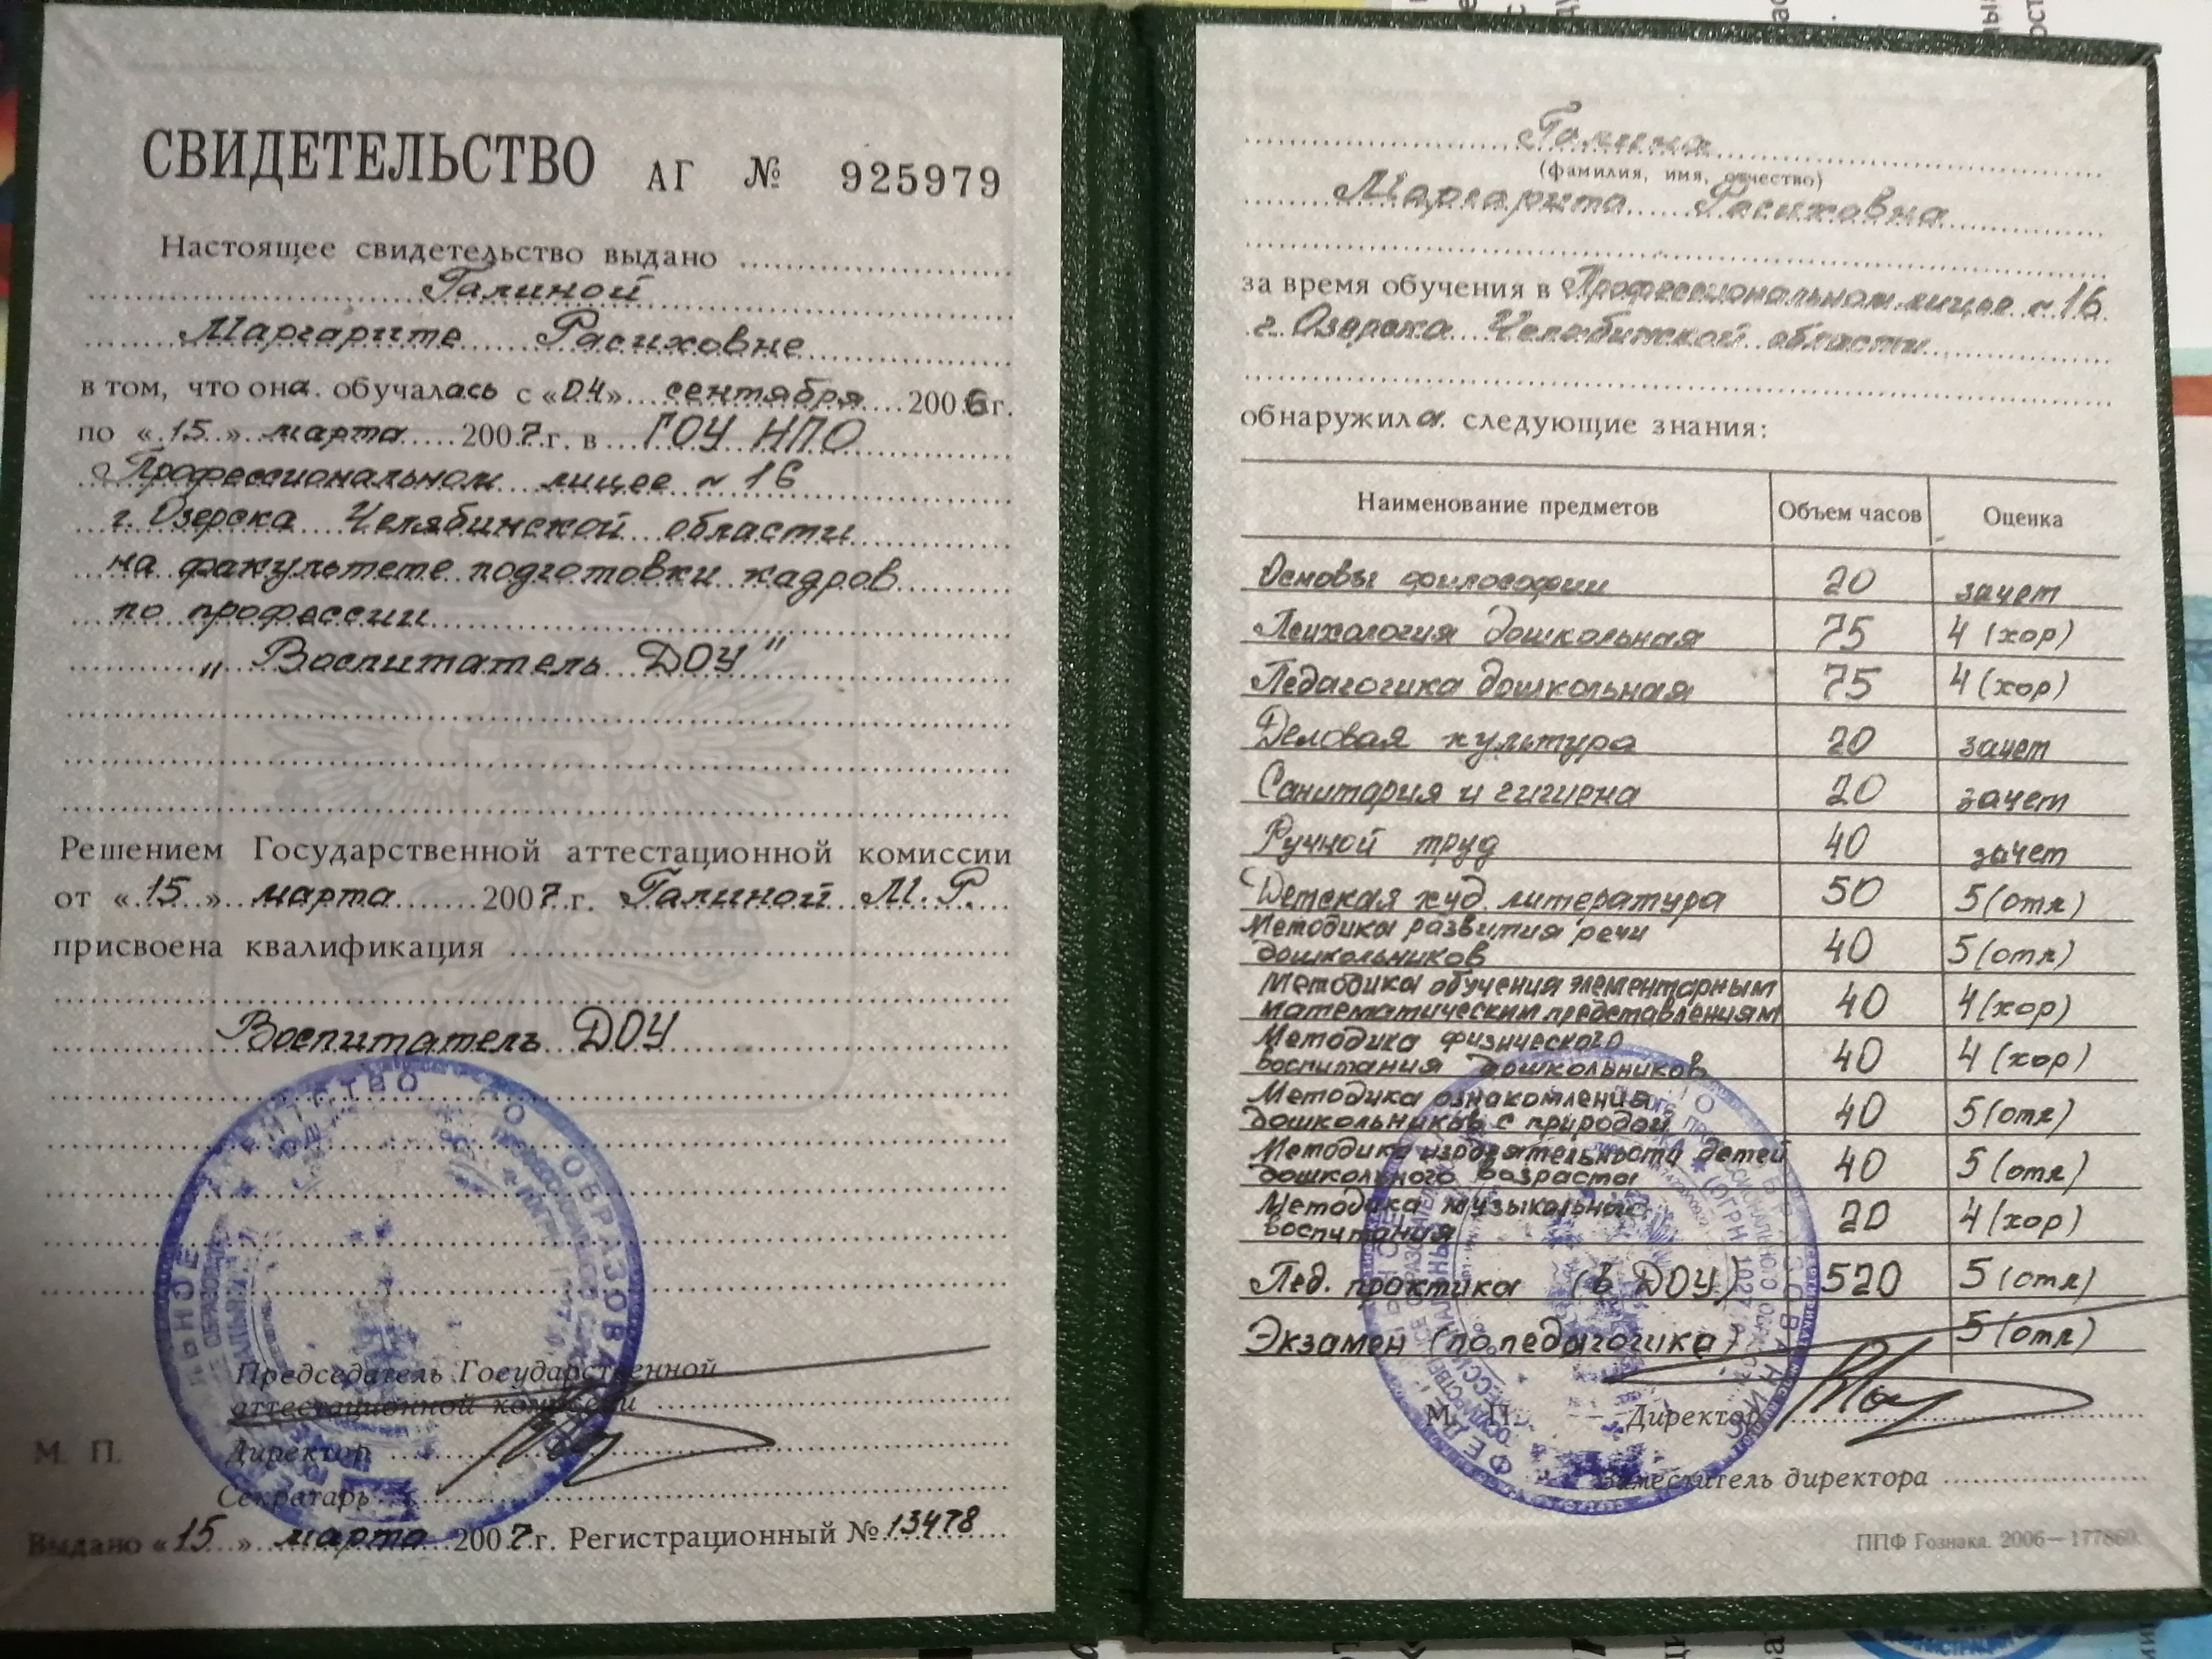 СВИДЕТЕЛЬСТВО АГ № 925979
Настоящее свидетельство выдано
Галиной
Маргарите Расиховне
в том, что она обучалась с «04» сентября 2006 г.
по «15» марта 2007 г. в ГОУ НПО
Профессиональном лицее № 16
г. Озерска Челябинской области
на факультете подготовки кадров
по профессии
„Воспитатель ДОУ"
Решением Государственной аттестационной комиссии
от «15» марта 2007 г. Галиной М. Р.
присвоена квалификация
Воспитатель ДОУ
Председатель Государственной
аттестационной комиссии
М. П. Директор
Секретарь
Выдано «15» марта 2007 г. Регистрационный № 13478
Галина
(фамилия, имя, отчество)
Маргарита Расиховна
за время обучения в Профессиональном лицее № 16
г. Озерска Челябинской области
обнаружила следующие знания:
Наименование предметов Объем часов Оценка
Основы философии 20 зачет
Психология дошкольная 75 4 (хор)
Педагогика дошкольная 75 4 (хор)
Деловая культура 20 зачет
Санитария и гигиена 20 зачет
Ручной труд 40 зачет
Детская худ. литература 50 5 (отл)
Методика развития речи
дошкольников 40 5 (отл)
Методика обучения элементарным
математическим представлениям 40 4 (хор)
Методика физического
воспитания дошкольников 40 4 (хор)
Методика ознакомления
дошкольников с природой 40 5 (отл)
Методика изодеятельности детей
дошкольного возраста 40 5 (отл)
Методика музыкального
воспитания 20 4 (хор)
Пед. практика (в ДОУ) 520 5 (отл)
Экзамен (по педагогика) 5 (отл)
М. П. Директор
Заместитель директора
ППФ Гознака. 2006—177860.